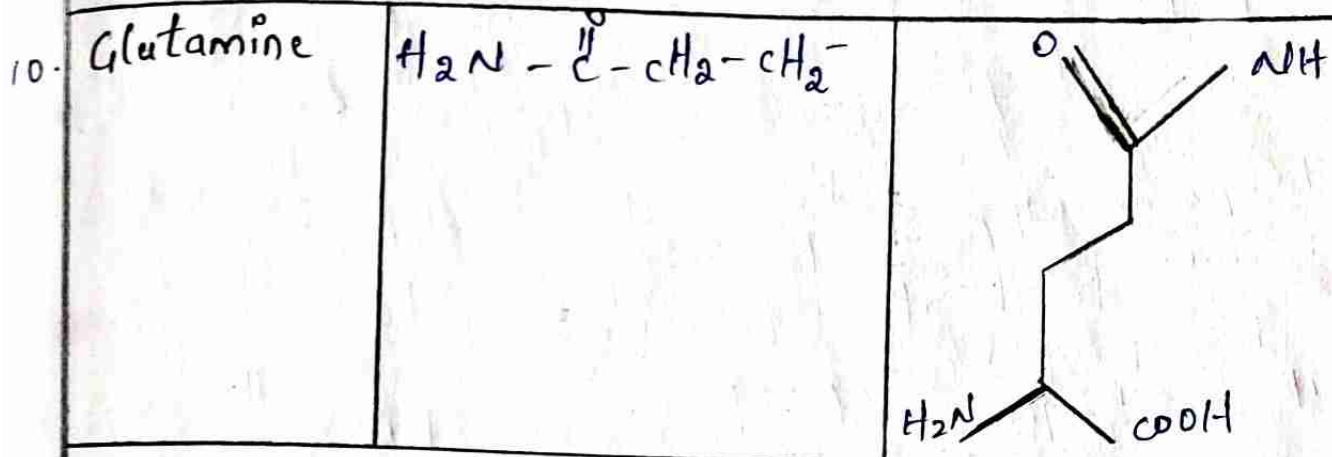 10. Glutamine
O
H2N - C - CH2 - CH2-
O NH
H2N COOH